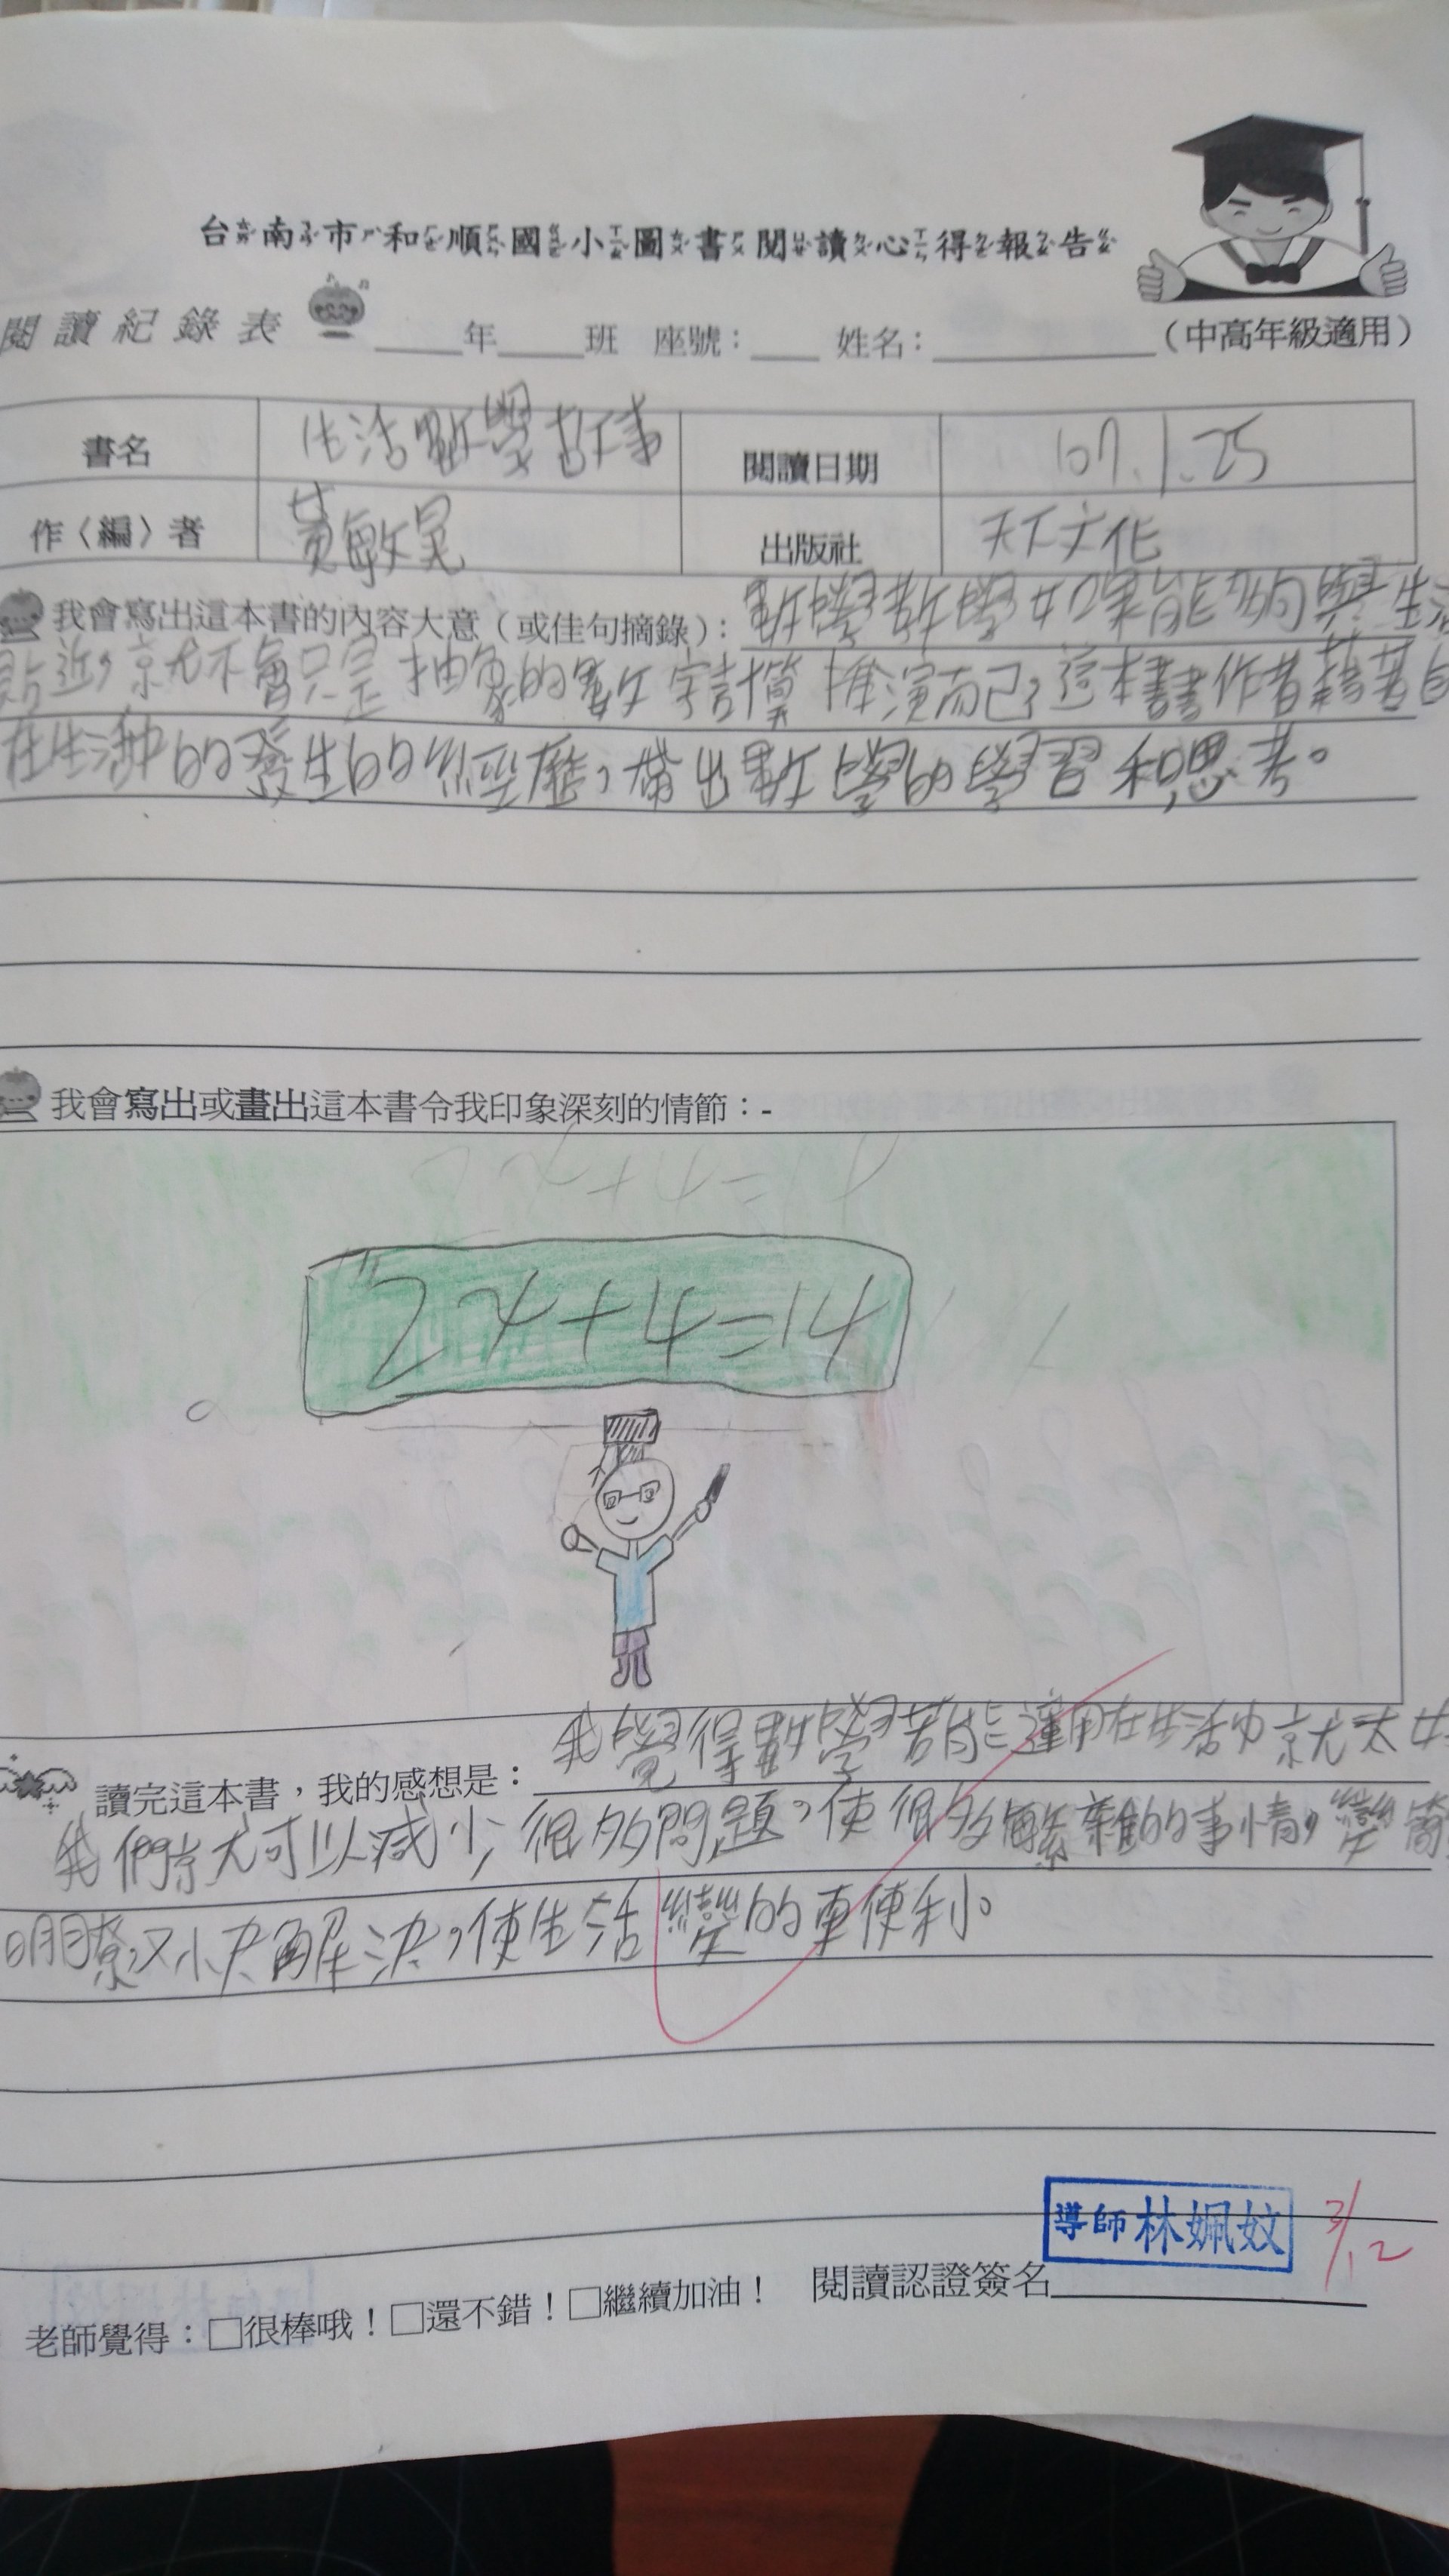 台南市和順國小圖書閱讀心得報告
閱讀紀錄表 ____年____班 座號：____ 姓名：________（中高年級適用）
書名 生活數學故事 閱讀日期 107.1.25
作〈編〉者 黃敏晃 出版社 天下文化
我會寫出這本書的內容大意（或佳句摘錄）： 數學教學如果能夠與生活
貼近，就不會只是抽象的數字計算推演而已，這本書作者藉著自
在生活中的發生的經歷，帶出數學的學習和思考。
我會寫出或畫出這本書令我印象深刻的情節：-
2x+4=14
2x+4=14
讀完這本書，我的感想是： 我覺得數學若能運用在生活中就太
我們就可以減少很多問題，使很多繁雜的事情，變簡
明瞭又快解決，使生活變的更便利。
導師 林姵妏 3/12
老師覺得：□很棒哦！□還不錯！□繼續加油！ 閱讀認證簽名